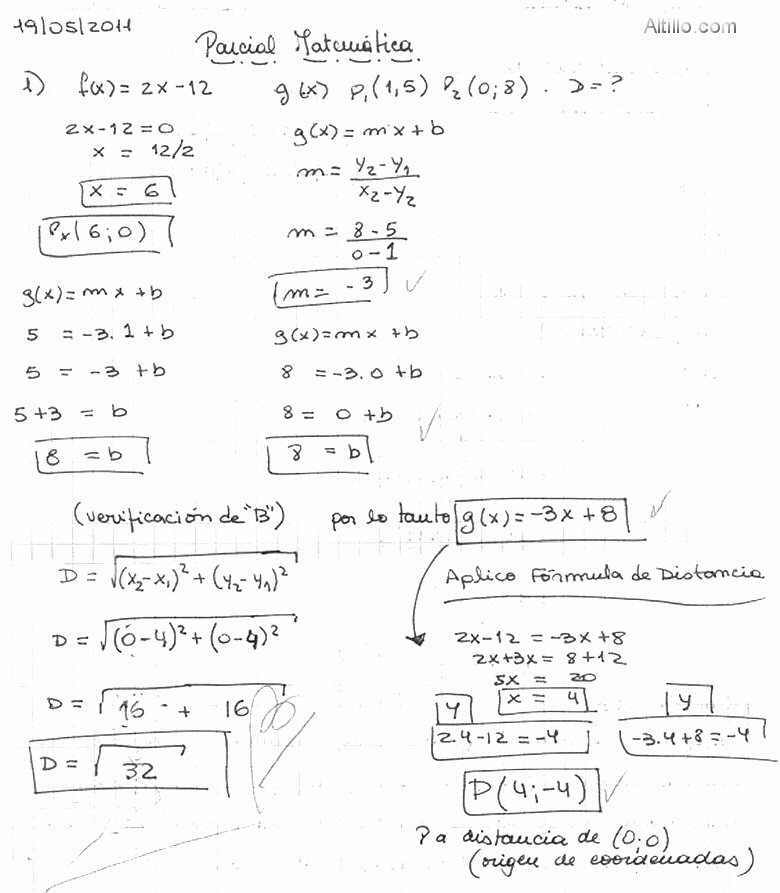 19/05/2011
Altillo.com
Parcial Matemática
1) f(x) = 2x - 12
g(x) P₁(1,5) P₂(0;8) . D = ?
2x - 12 = 0
x = 12/2
x = 6
Pₓ(6;0)
g(x) = mx + b
m = (y₂ - y₁)/(x₂ - y₂)
m = (8 - 5)/(0 - 1)
m = -3 ✓
g(x) = mx + b
5 = -3.1 + b
5 = -3 + b
5 + 3 = b
8 = b
g(x) = mx + b
8 = -3.0 + b
8 = 0 + b
8 = b ✓
(verificación de "B")
por lo tanto g(x) = -3x + 8 ✓
D = √(x₂ - x₁)² + (y₂ - y₁)²
D = √(0 - 4)² + (0 - 4)²
D = √16 + 16
D = √32
Aplico Fórmula de Distancia
2x - 12 = -3x + 8
2x + 3x = 8 + 12
5x = 20
x = 4
y
2.4 - 12 = -4
y
-3.4 + 8 = -4
P(4;-4) ✓
P a distancia de (0;0)
(origen de coordenadas)